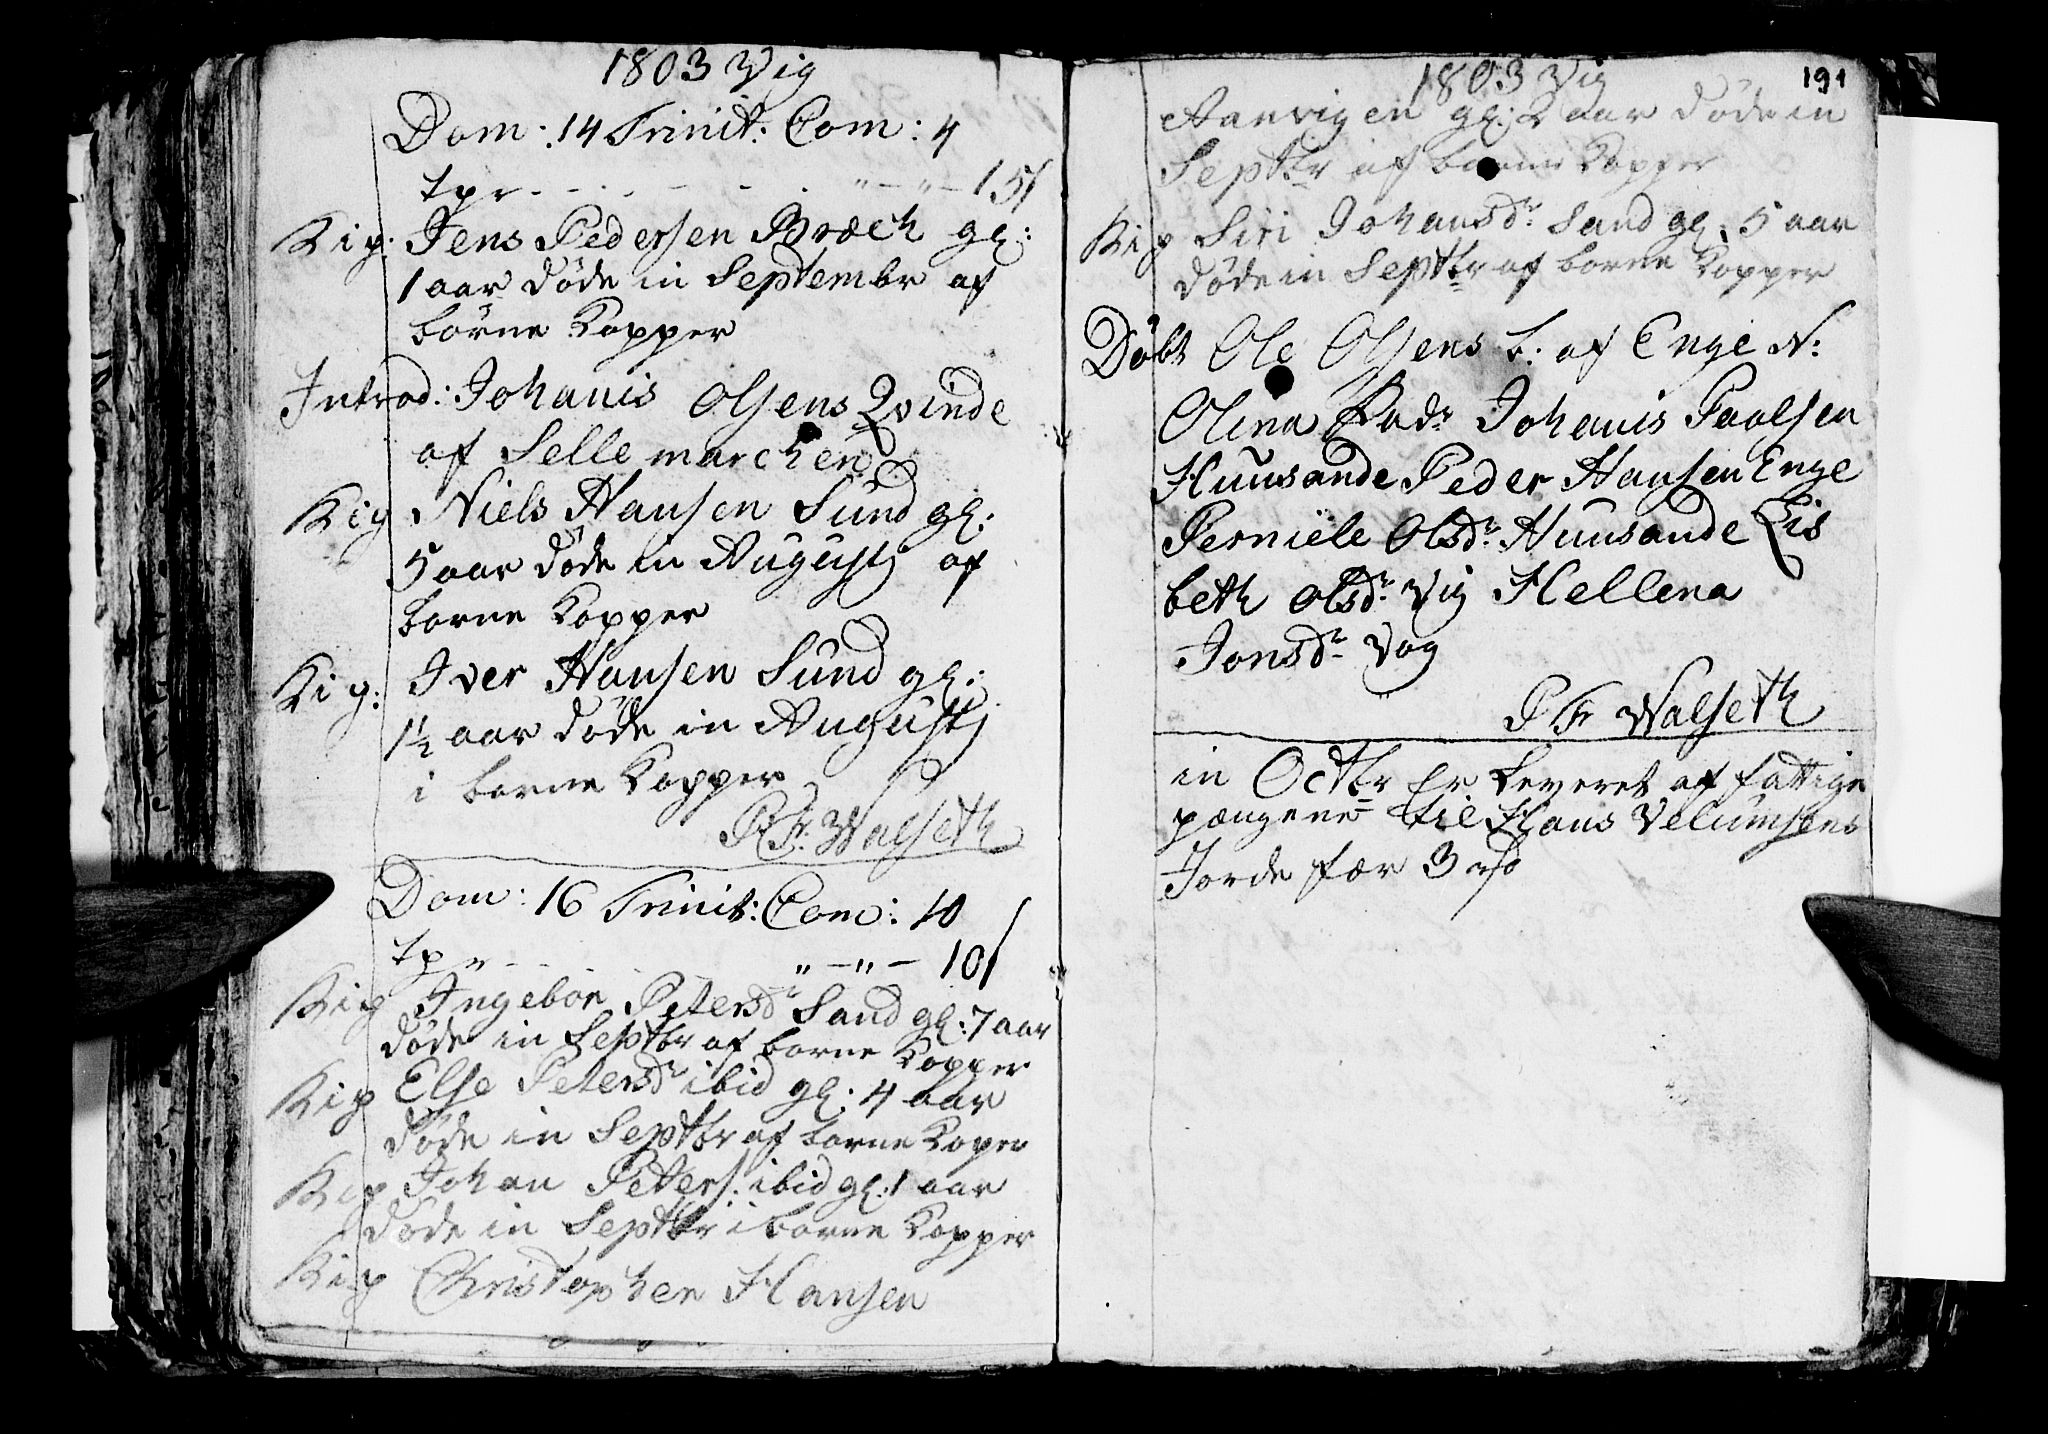 1803 Vig
Dom: 14 Trinit: Com: 4
tpr - - - - - - " - " - 15/
Kip: Jens Pedersen Bræch gl:
1 aar døde in Septembr af
börne Kopper
Introd: Johanis Olsens Qvinde
af Sellemarchen
Kip Niels Hansen Sund gl:
5 aar døde in Augustj af
borne Kopper
Kip: Iver Hansen Sund gl:
1½ aar døde in Augustj
i borne Kopper
P Fr: Walseth
Dom: 16 Trinit: Com: 10
tpr - - - - " - " - 10/
Kip Ingebor Petersdr Sand gl: 7 aar
døde in Septbr af borne Kopper
Kip Else Petersdr ibid gl: 4 aar
døde in Septbr af borne Koper
Kip Johan Peters: ibid gl: 1 aar
døde in Septbr i borne Kopper
Kip Christopher Hansen
1803 Vig 191
Aanvigen gl: 2 aar døde in
Septbr af borne Kopper
Kip Siri Johansdr Sand gl: 5 aar
døde in Septbr af borne Kopper
Døbt Ole Olsens b: af Enge N:
Olina Fadr Johanis Paalsen
Huusande Peder Hansen Enge
Perniele Olsdr Huusande Lis
beth Olsdr Vig Hellena
Jonsdr Vog
P Fr Walseth
in Octbr er leveret af fattige
pængene til Hans Velumsens
Jorde fær 3 rd